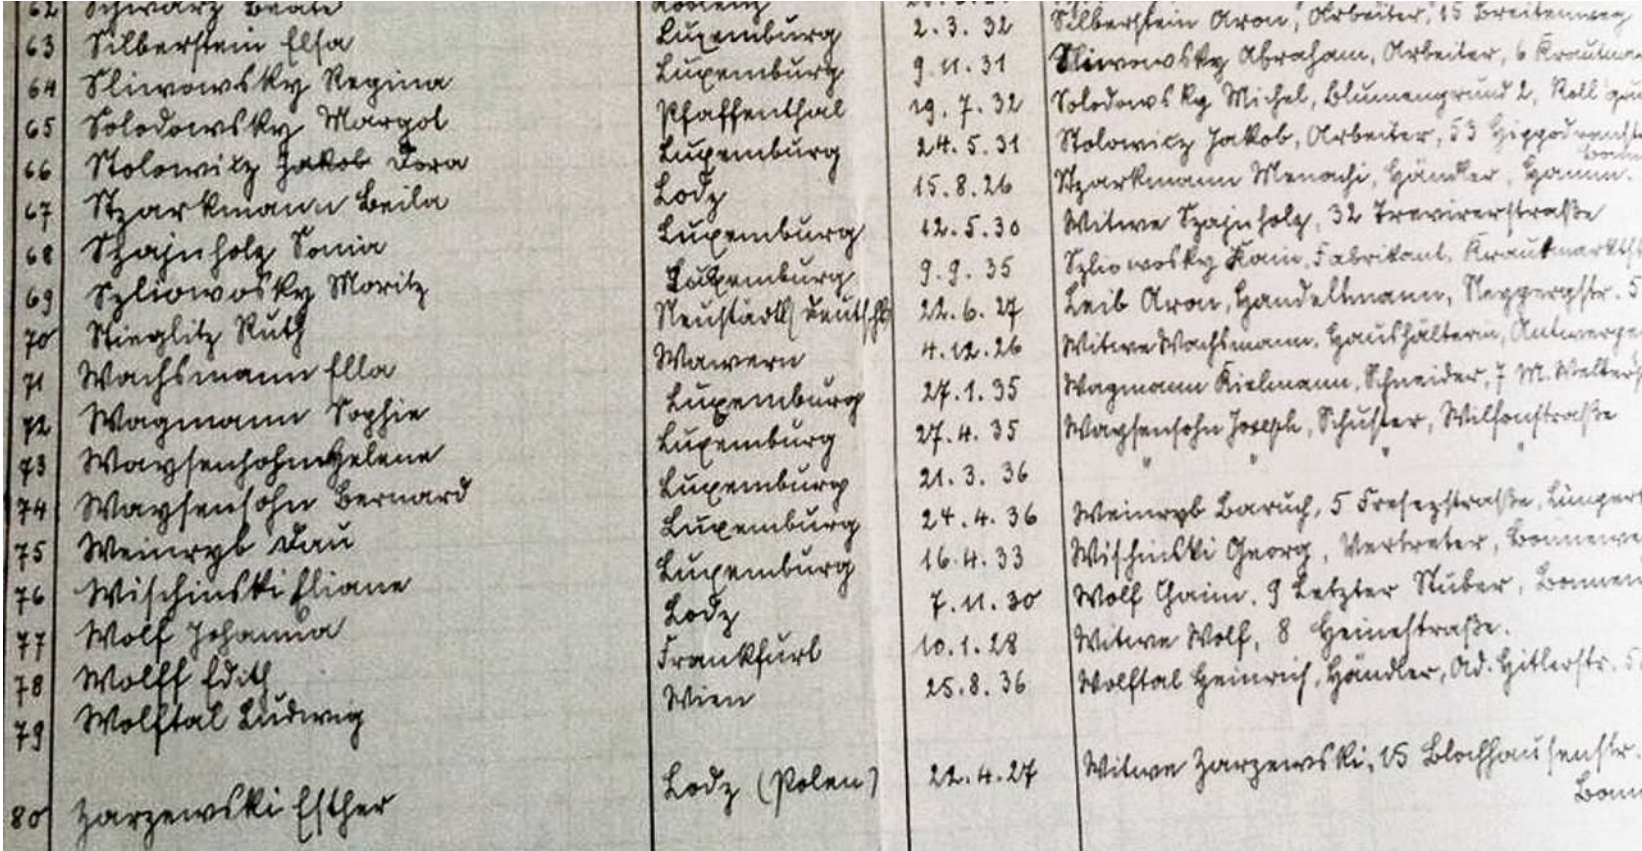 62 Schwarz Beate Koblenz
63 Silberstein Elsa Luxemburg 2.3.32 Silberstein Aron, Arbeiter, 15 Breitenweg
64 Sliwowsky Regina Luxemburg 9.11.31 Sliwowsky Abraham, Arbeiter, 6 Krautma
65 Solodowsky Margot Pfaffenthal 19.7.32 Solodowsky Michel, Blumengrund 2,
66 Stolowicz Jakob Dora Luxemburg 24.5.31 Stolowicz Jakob, Arbeiter, 53
67 Szarkmann Beila Lodz 15.8.26 Szarkmann Menachi, Händler, Hamm.
68 Szajnholz Sonia Luxemburg 12.5.30 Witwe Szajnholz, 32 Trevirerstraße
69 Szliowosky Moritz Luxemburg 9.9.35 Szliowosky Kain, Fabrikant, Krautmarktst
70 Stieglitz Ruth Neustädtl (Deutschl) 22.6.27 Leib Aron, Handelsmann, Neypergstr. 5
71 Wachsmann Ella Wawern 4.12.26 Witwe Wachsmann, Haushälterin, Antwerpe
72 Wagmann Sophie Luxemburg 27.1.35 Wagmann Kielmann, Schneider, 7 M. Welters
73 Waysensohn Helene Luxemburg 27.4.35 Waysensohn Joseph, Schuster, Wilsonstraße
74 Waysensohn Bernard Luxemburg 21.3.36 " "
75 Weinryb Dau Luxemburg 24.4.36 Weinryb Baruch, 5 Fresezstraße, Limpert
76 Wischinski Eliane Luxemburg 16.4.33 Wischinski Georg, Vertreter, Bonnewe
77 Wolf Johanna Lodz 7.11.30 Wolf Chaim, 9 Letzter Stuber, Bonnen
78 Wolff Edith Frankfurt 10.1.28 Witwe Wolf, 8 Heinestraße.
79 Wolftal Ludwig Wien 25.8.36 Wolftal Heinrich, Händler, Ad. Hitlerstr. 5
80 Zarzewski Esther Lodz (Polen) 22.4.27 Witwe Zarzewski, 15 Blochhausenstr.
Bonn